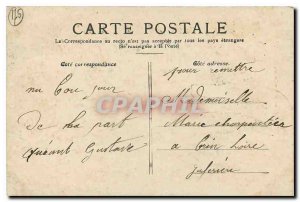 115
CARTE POSTALE
La Correspondance au recto n'est pas acceptée par tous les pays étrangers
(Se renseigner à la Poste)
Côté correspondance
Côté adresse
un Bon jour
de la part
Gustave
pour remettre
Mademoiselle
Marie charpentier
a Loire
CPARAMA